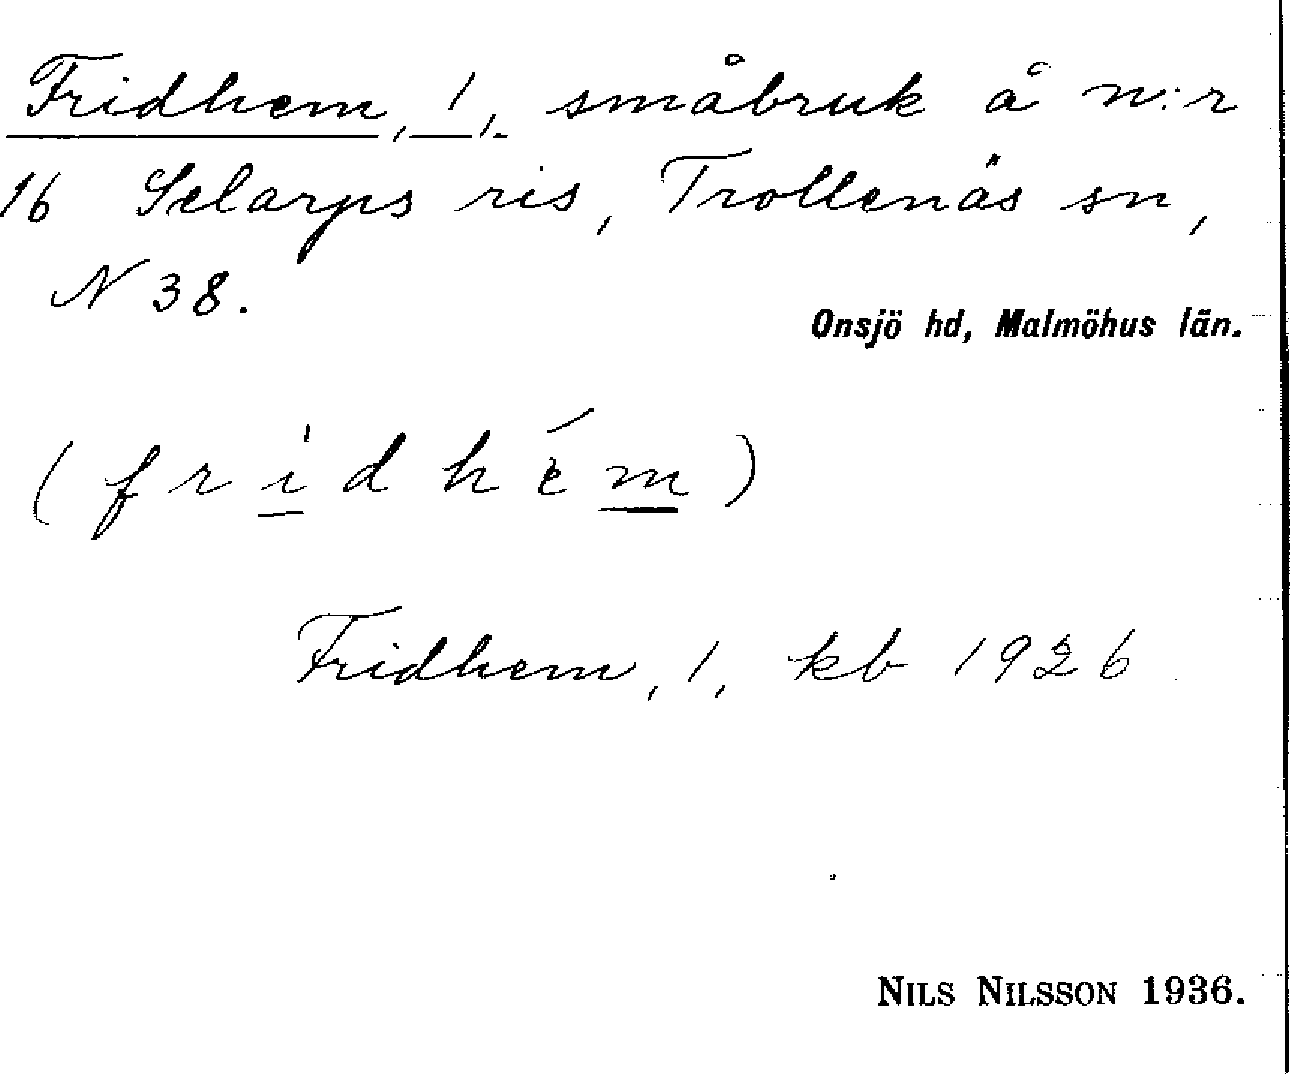 Fridhem, 1, småbruk å n:r
16 Selarps ris, Trollenäs sn,
N 38.
Onsjö hd, Malmöhus län.
(fridhém)
Fridhem, 1, kb 1926
NILS NILSSON 1936.